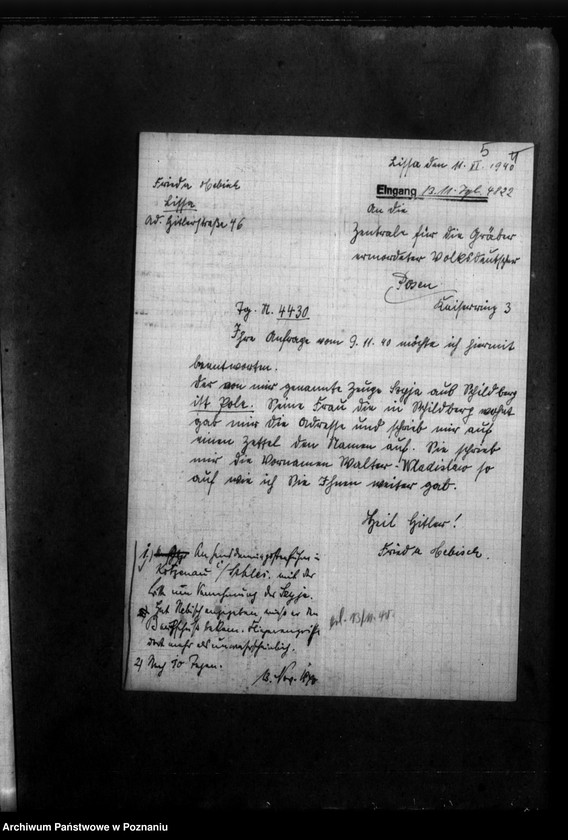 5
Lissa den 11. XI. 1940
Eingang 13.11. Tgb. 4822
Frieda Nebisch
Lissa
Ad. Hitlerstraße 46
An die
Zentrale für die Gräber
ermordeter Volksdeutscher
Posen
Kaiserring 3
Tg. N. 4430
Ihre Anfrage vom 9.11.40 möchte ich hiermit
beantworten.
Der von mir genannte Zeuge Szyja aus Schildberg
ist Pole. Seine Frau die in Schildberg wohnt
gab mir die Adresse und schrieb mir auf
einen Zettel den Namen auf. Sie schrieb
mir die Vornamen Walter-Wladislaw so
auf wie ich Sie Ihnen weiter gab.
Heil Hitler!
Frieda Nebisch.
1) An
Kotzenau mit der
um Vernehmung des Szyja.
Hat Nebisch angegeben, daß er den
mehr als unwahrscheinlich.
2) Nach 10 Tagen.
13. Nov. 1940
Archiwum Państwowe w Poznaniu